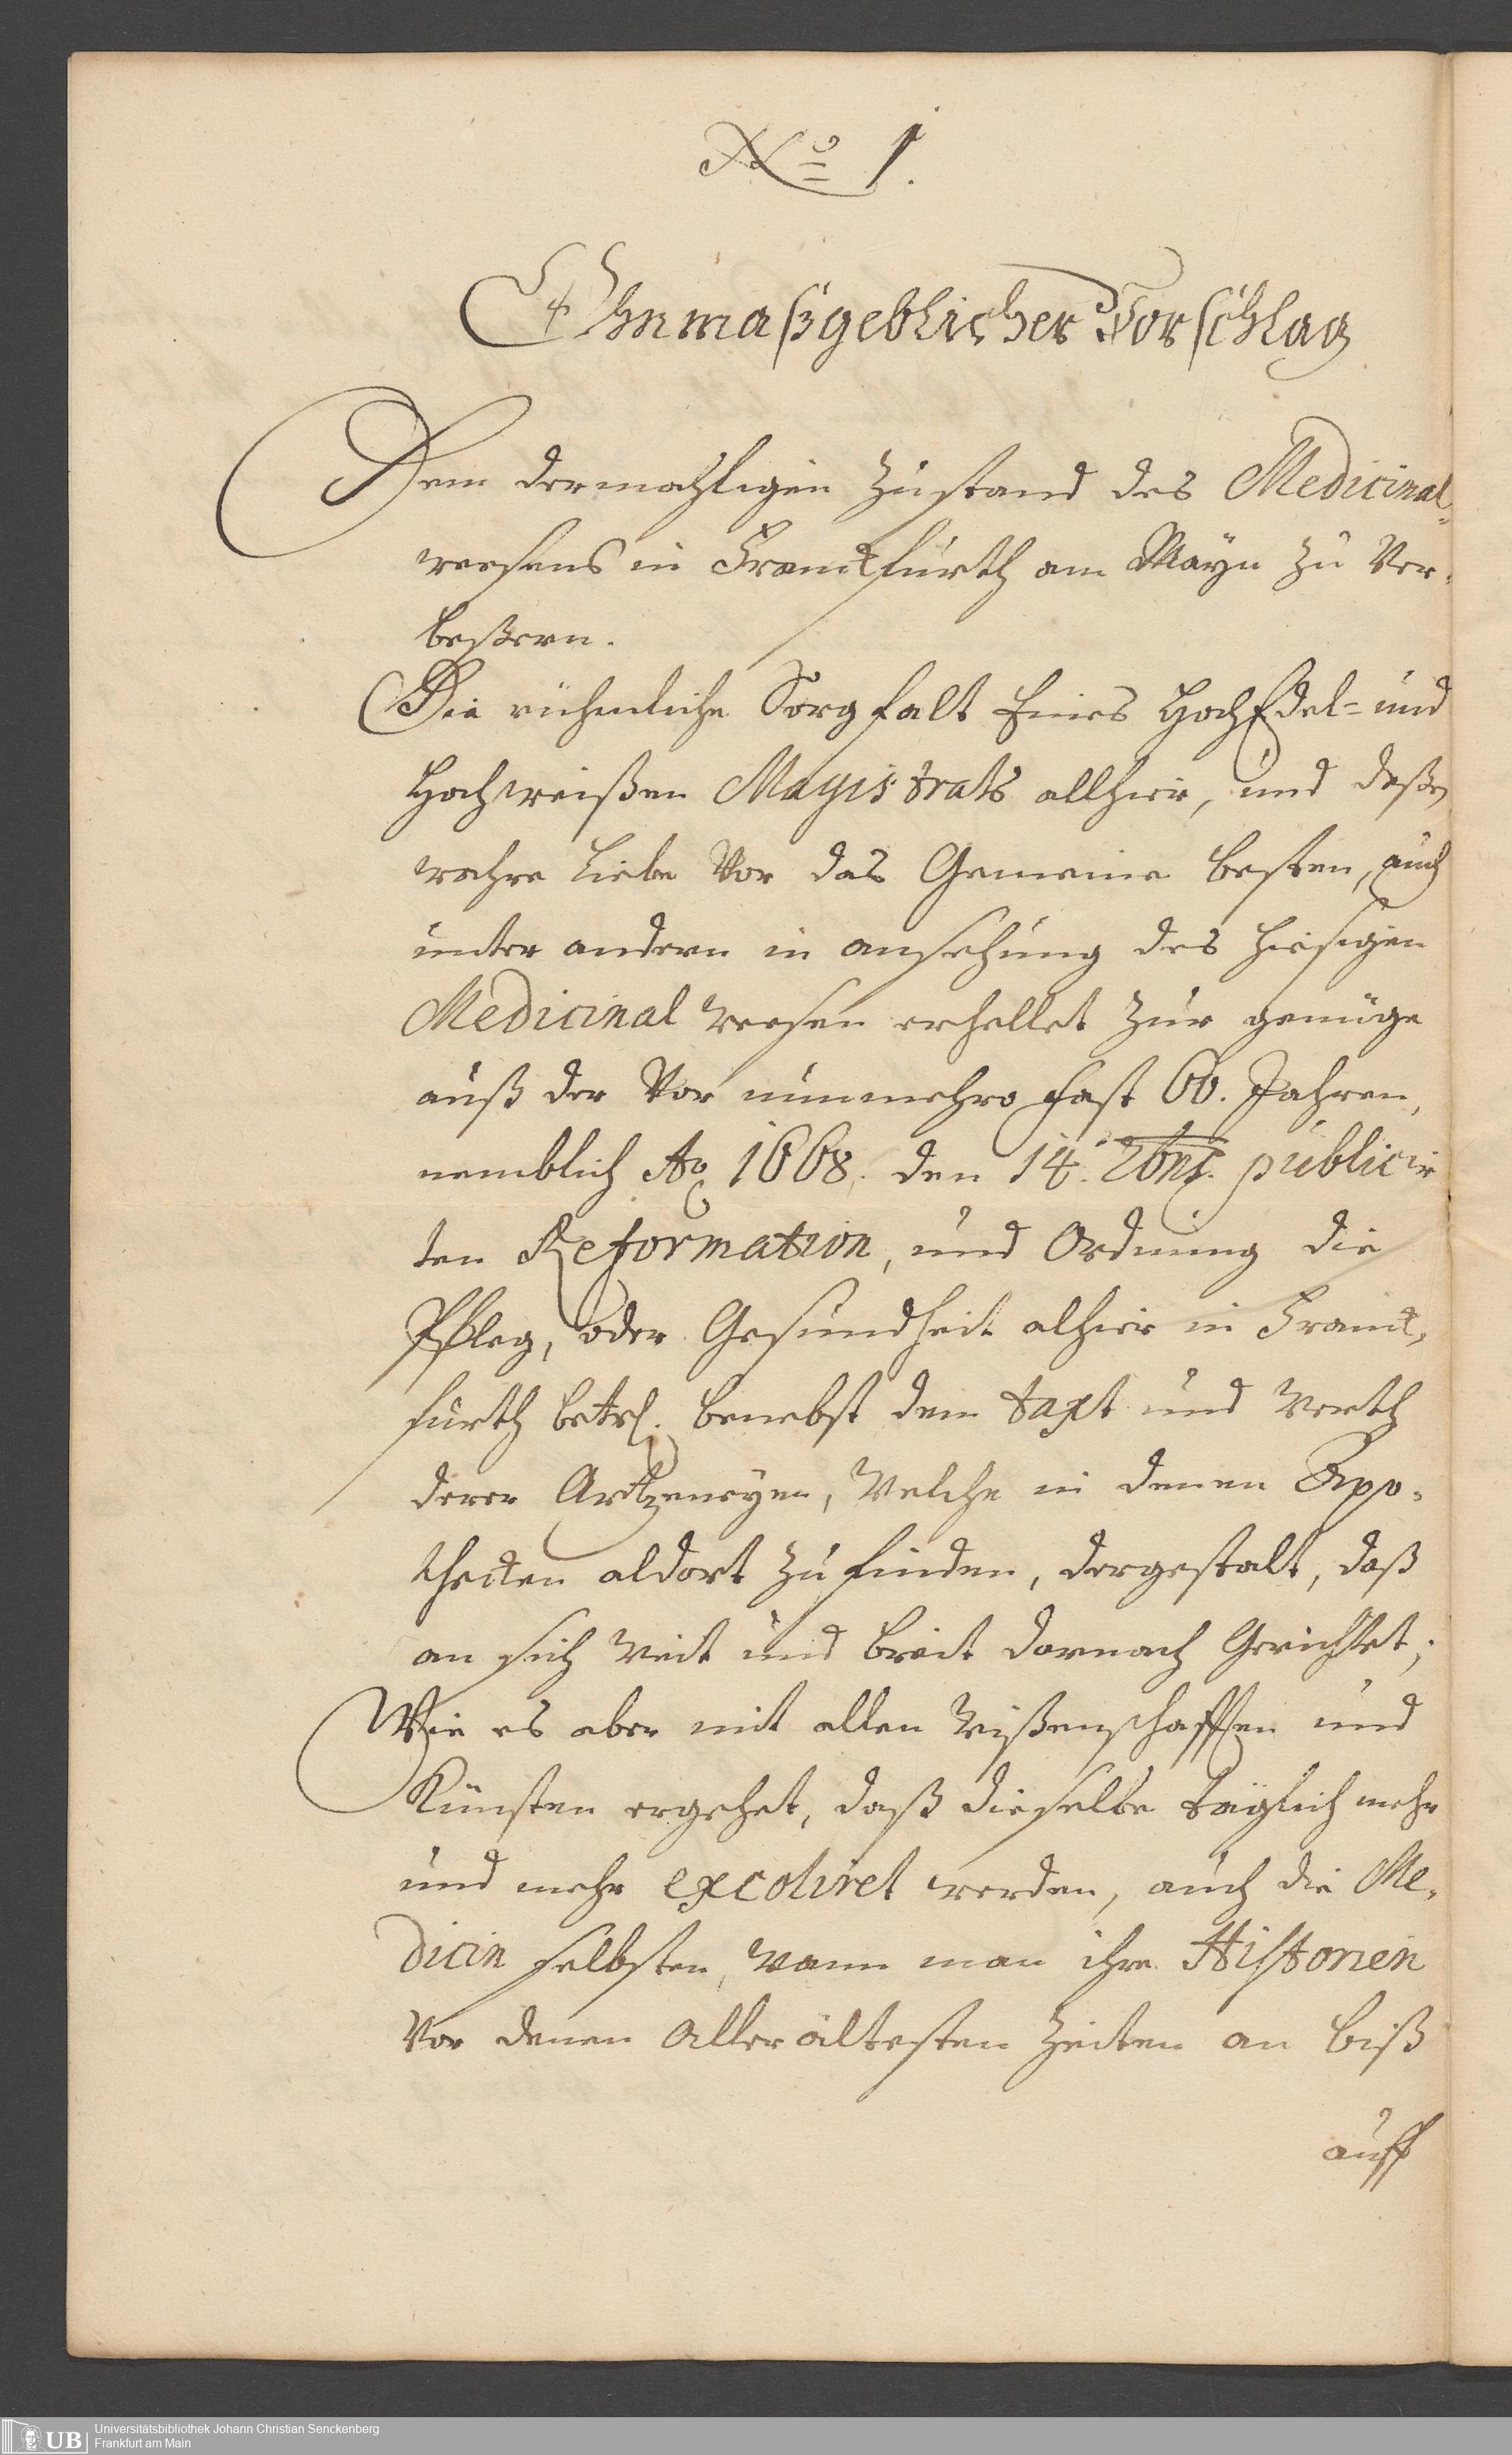 No 1.
Ohnmaßgeblicher Vorschlag
Dem dermahligen Zustand des Medicinal-
weesens in Franckfurth am Mayn zu Ver-
beßern.
Die rühmliche Sorgfalt Eines HochEdel- und
Hochweißen Magistrats allhier, und deßen
wahre Liebe Vor das Gemeine besten, auch
unter andern in ansehung des hiesigen
Medicinal weesen erhellet zur genüge
auß der Vor nunmehro fast 60. Jahren,
nemblich Ao 1668. den 14. 7bris. publicir
ten Reformation, und Ordnung die
Pfleg, oder Gesundheit alhier in Franck-
furth betrl. benebst dem taxt und Werth
derer Artzeneyen, Welche in denen Apo-
thecken aldort zu finden, dergestalt, daß
an sich Weit und breit darnach Gerichtet;
Wie es aber mit allen Wißenschafften und
Künsten ergehet, daß dieselbe täglich mehr
und mehr excoliret werden, auch die Me-
dicin selbsten, Wann man ihre Historien
Vor denen Allerältesten Zeiten an biß
auff
UB
Universitätsbibliothek Johann Christian Senckenberg
Frankfurt am Main